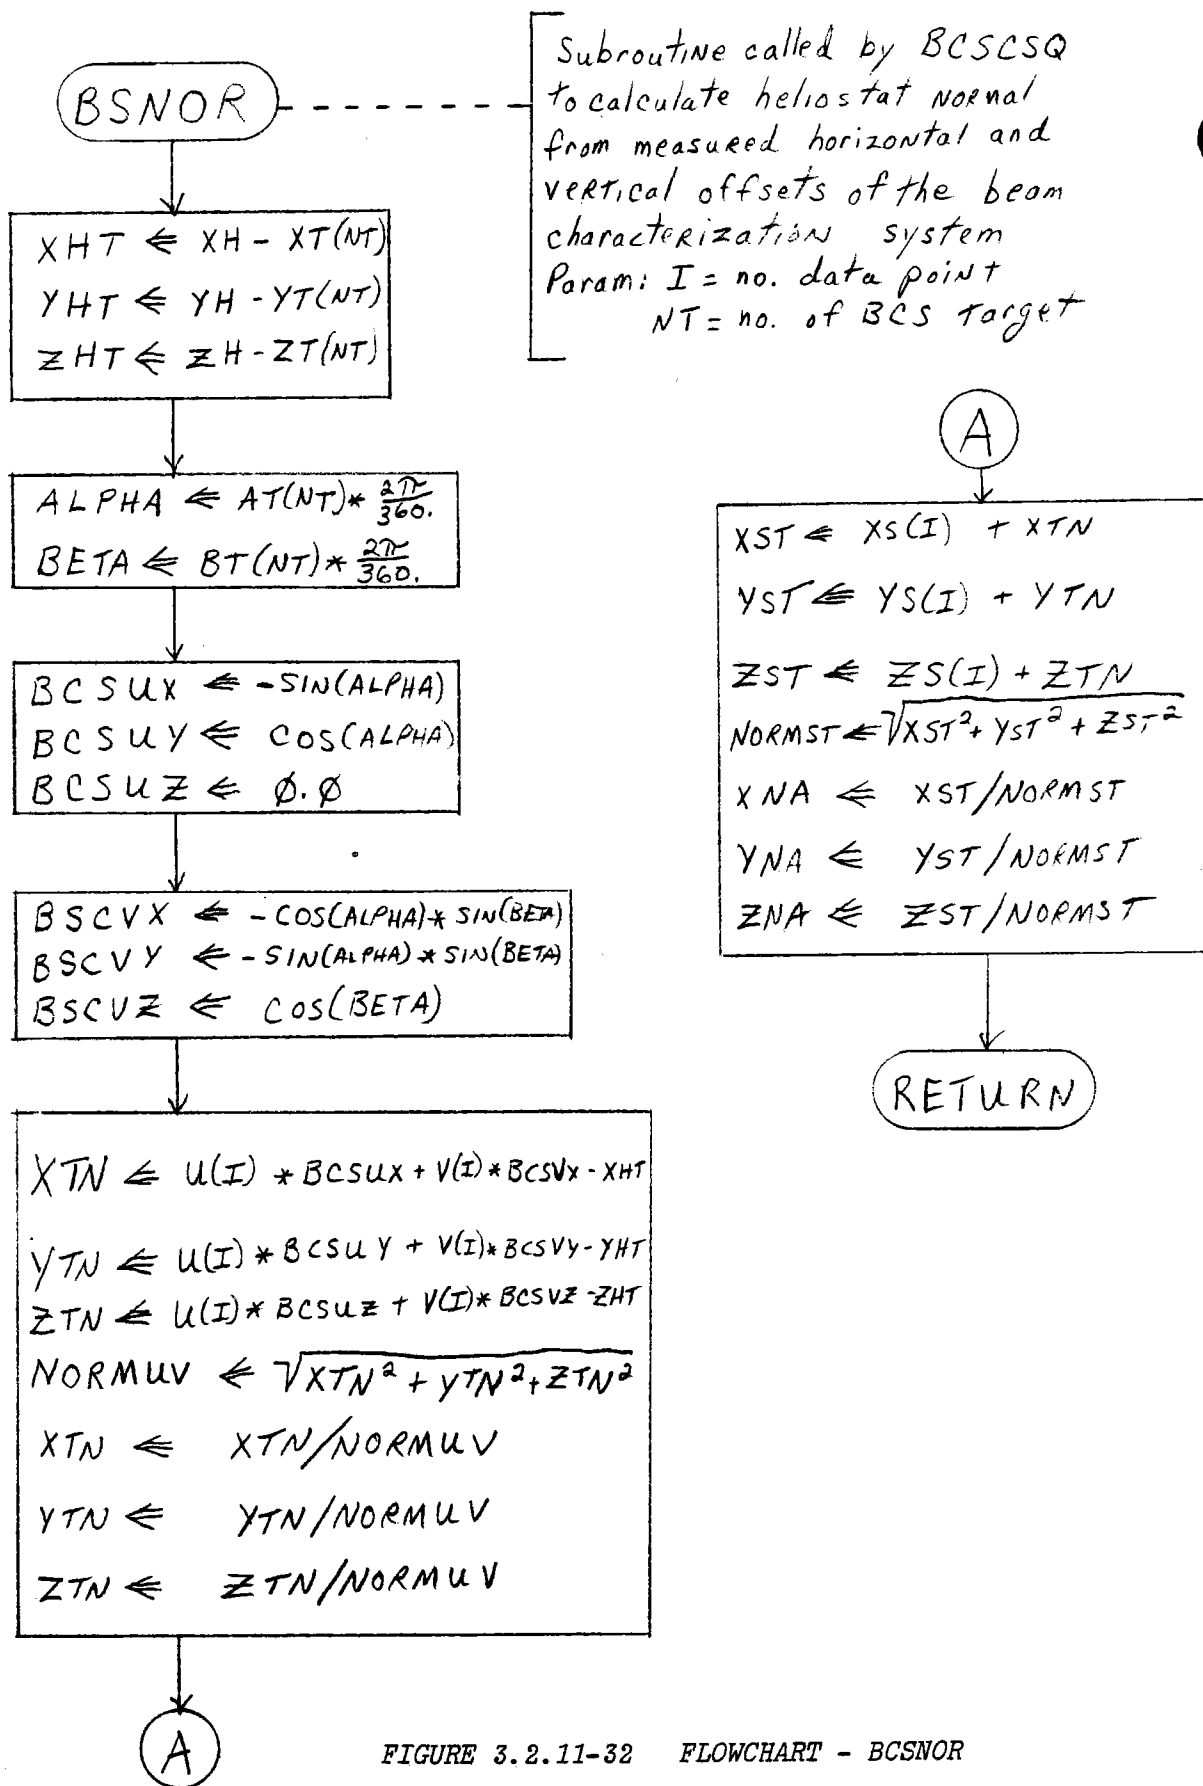 BSNOR
Subroutine called by BCSCSQ
to calculate heliostat NORmal
from measured horizontal and
vertical offsets of the beam
characterization system
Param: I = no. data point
NT = no. of BCS Target
XHT ⇐ XH - XT(NT)
YHT ⇐ YH - YT(NT)
ZHT ⇐ ZH - ZT(NT)
ALPHA ⇐ AT(NT)* 2π/360.
BETA ⇐ BT(NT)* 2π/360.
BCSUX ⇐ -SIN(ALPHA)
BCSUY ⇐ COS(ALPHA)
BCSUZ ⇐ Ø.Ø
BSCVX ⇐ -COS(ALPHA)* SIN(BETA)
BSCVY ⇐ -SIN(ALPHA)* SIN(BETA)
BSCVZ ⇐ COS(BETA)
XTN ⇐ U(I) * BCSUX + V(I)* BCSVX - XHT
YTN ⇐ U(I)* BCSUY + V(I)* BCSVY - YHT
ZTN ⇐ U(I)* BCSUZ + V(I)* BCSVZ - ZHT
NORMUV ⇐ √XTN² + YTN² + ZTN²
XTN ⇐ XTN/NORMUV
YTN ⇐ YTN/NORMUV
ZTN ⇐ ZTN/NORMUV
A
A
XST ⇐ XS(I) + XTN
YST ⇐ YS(I) + YTN
ZST ⇐ ZS(I) + ZTN
NORMST ⇐ √XST² + YST² + ZST²
XNA ⇐ XST/NORMST
YNA ⇐ YST/NORMST
ZNA ⇐ ZST/NORMST
RETURN
FIGURE 3.2.11-32 FLOWCHART - BCSNOR